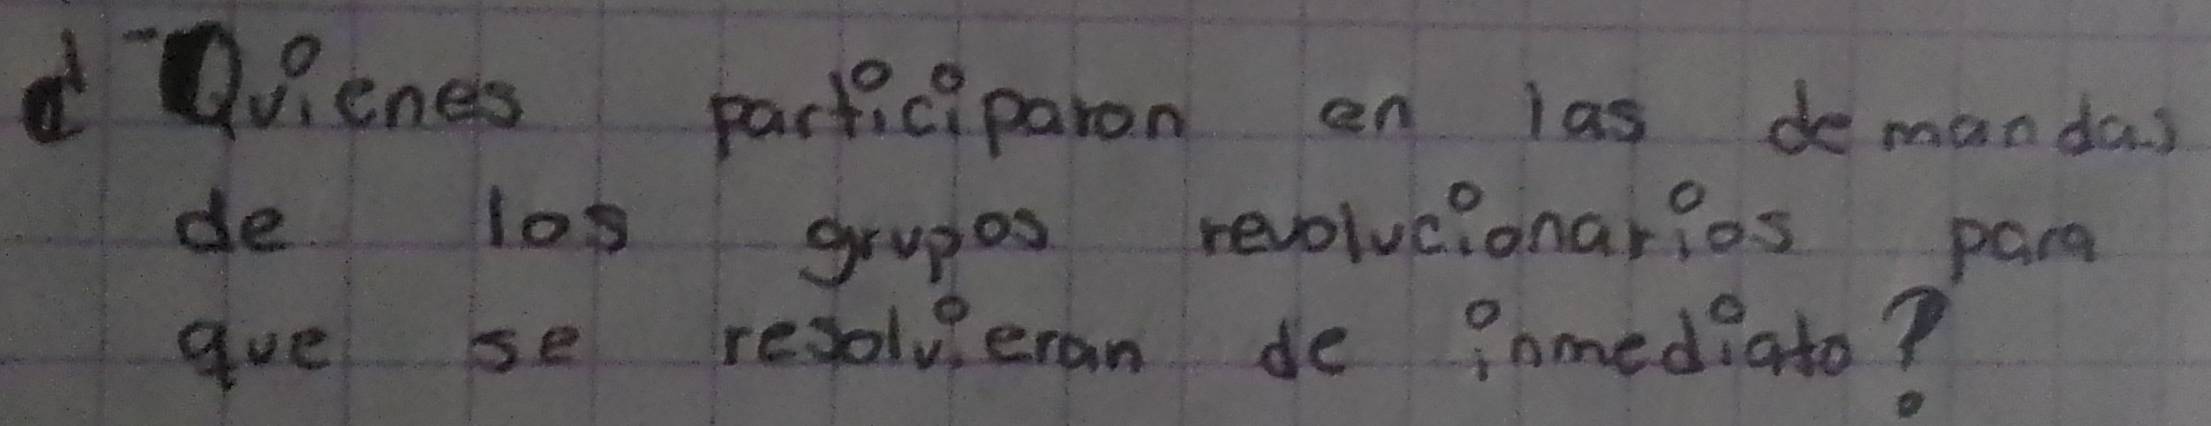 d-Quienes participaron en las demandas
de los grupos revolucionarios para
que se resolvieran de inmediato?